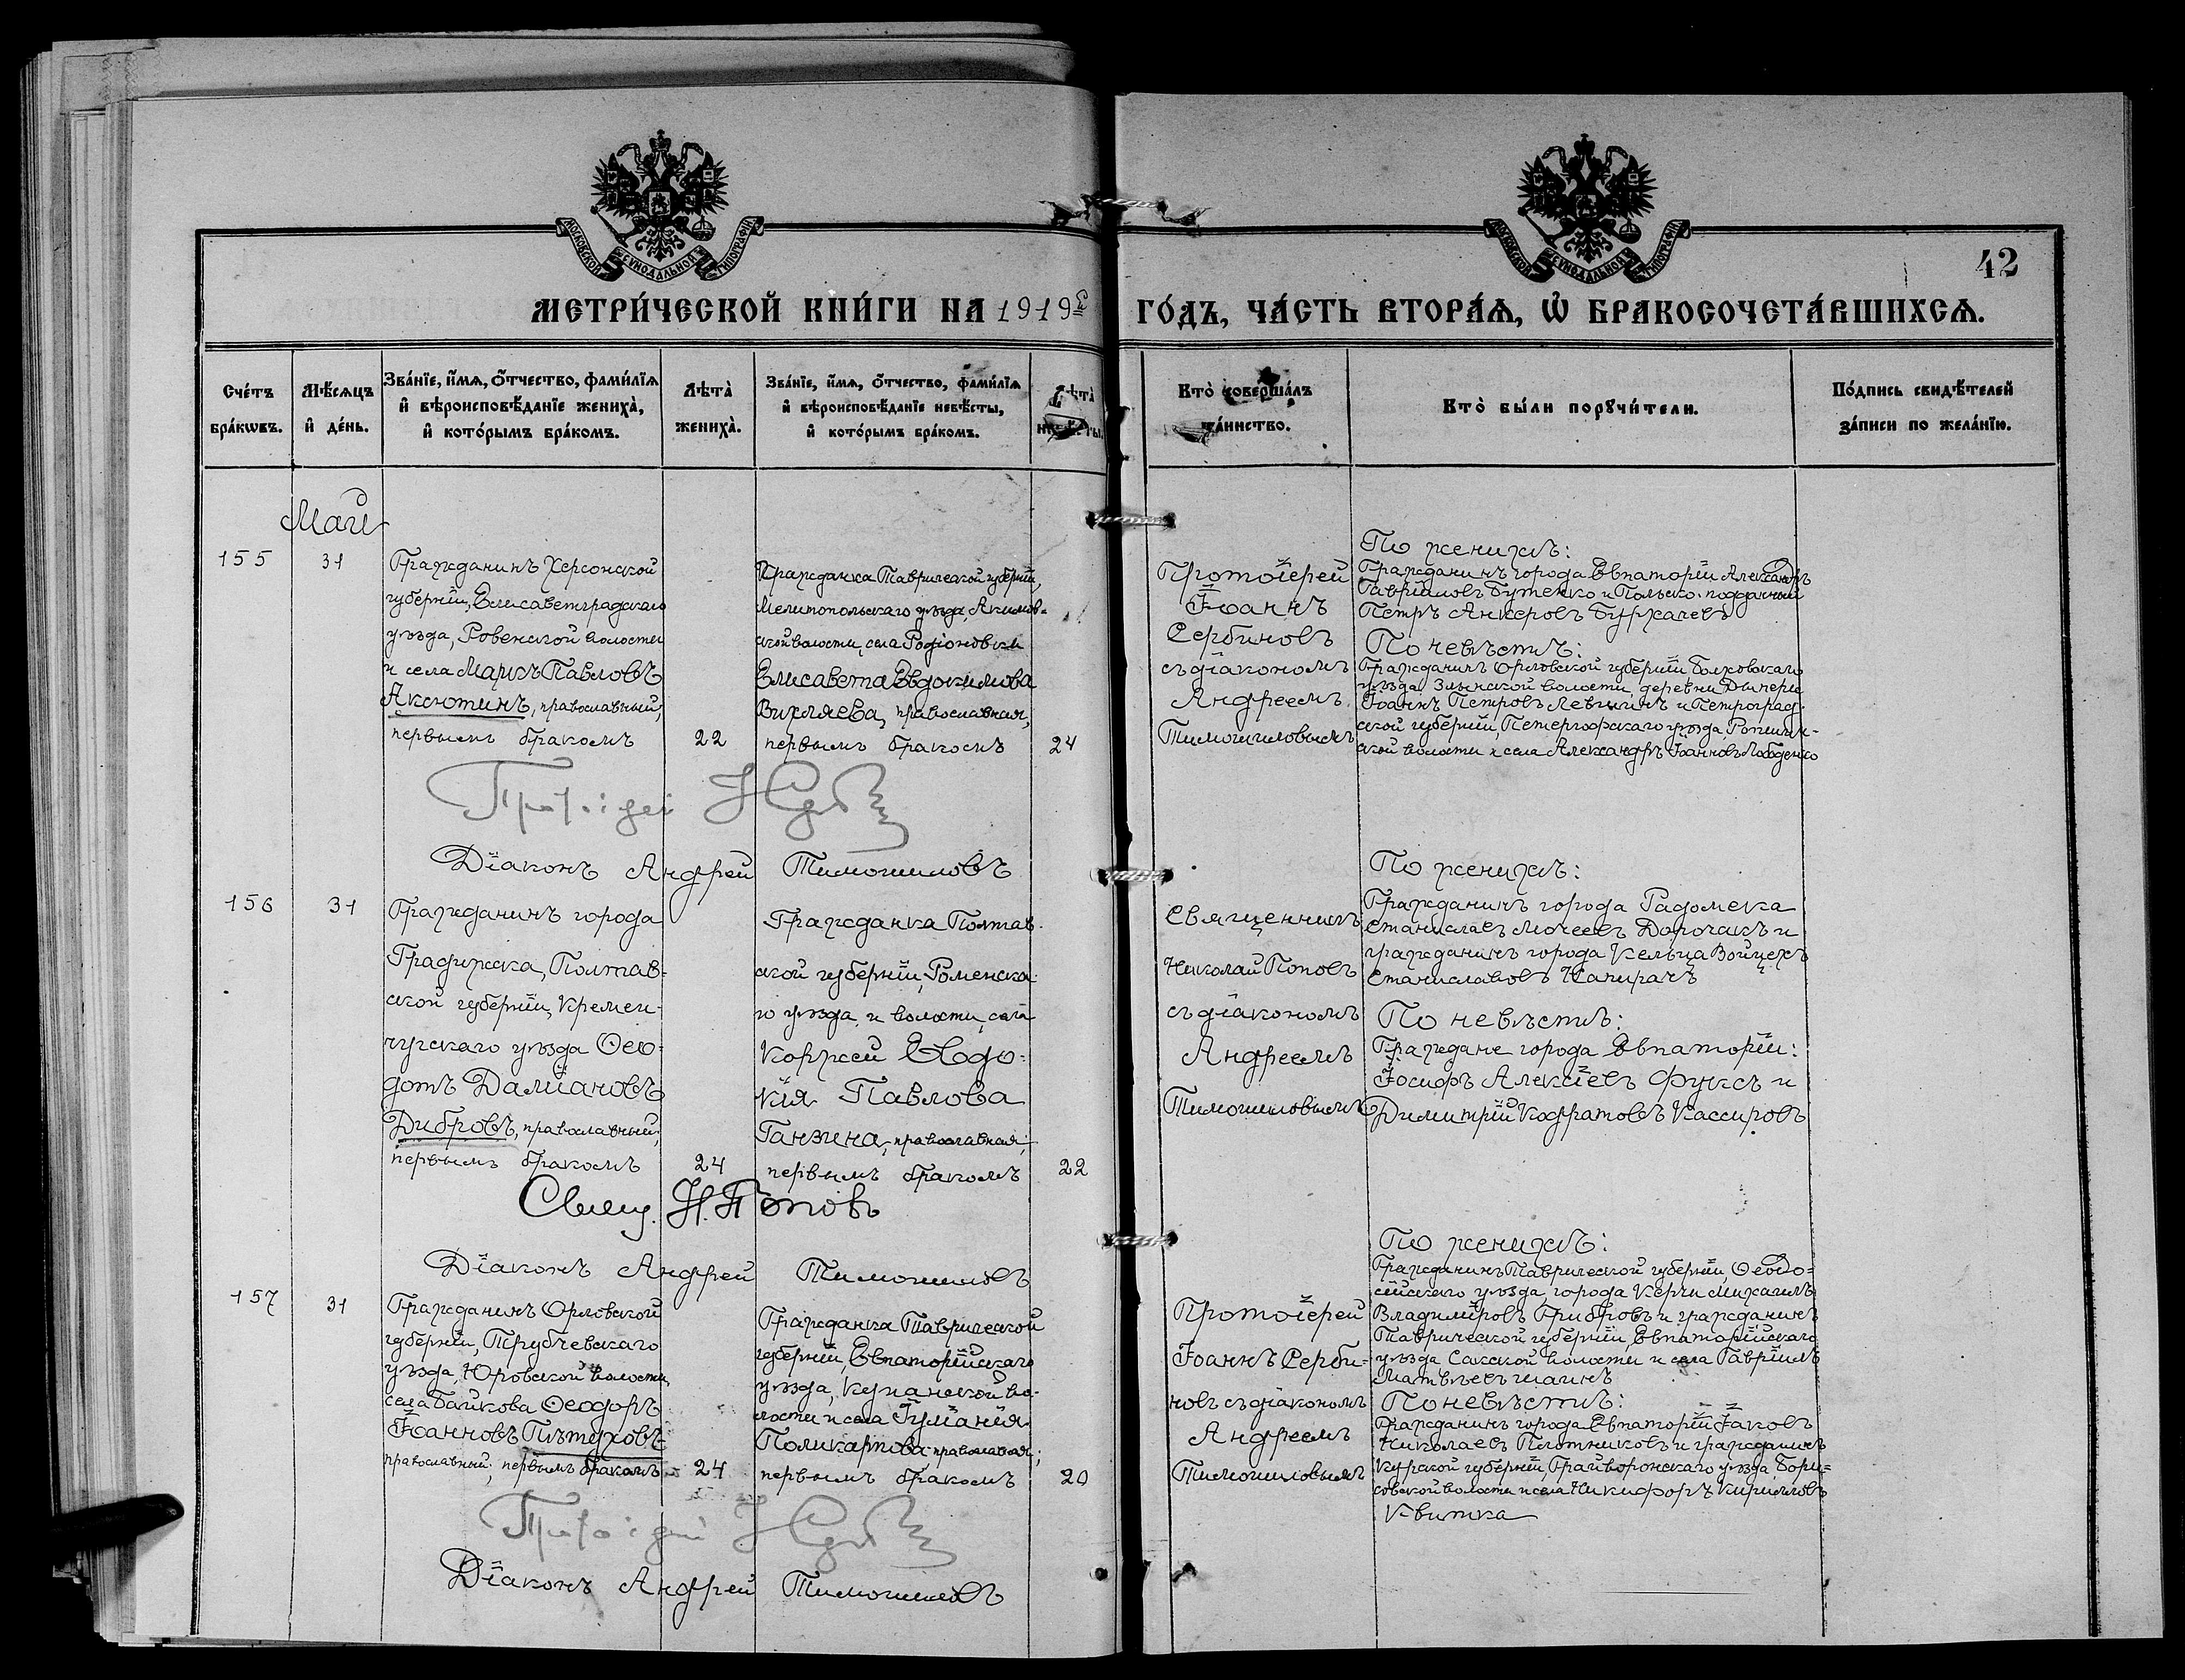 МОСКОВСКОЙ СУНОДАЛЬНОЙ ТИПОГРАФІИ
МОСКОВСКОЙ СУНОДАЛЬНОЙ ТИПОГРАФІИ
42
МЕТРИ́ЧЕСКОЙ КНИ́ГИ НА 1919й ГО́ДЪ, ЧА́СТЬ ВТОРА́Я, Ѡ БРАКОСОЧЕТА́ВШИХСЯ.
Сче́тъ
бра́кѡвъ.
Мѣ́сяцъ
и де́нь.
Зва́нїе, и́мя, о́тчество, фами́лїя
и вѣроисповѣ́данїе жениха̀,
и кото́рымъ бра́комъ.
Лѣта̀
жениха̀.
Зва́нїе, и́мя, о́тчество, фами́лїя
и вѣроисповѣ́данїе невѣ́сты,
и кото́рымъ бра́комъ.
Лѣта̀
Кто̀ соверша́лъ
та́инство.
Кто̀ бы́ли порꙋчи́тели.
По́дпись свидѣ́телей
за́писи по жела́нїю.
Май
155
31
Гражданинъ Херсонской
губерніи, Елисаветградскаго
уѣзда, Ровенской волости
и села Маркъ Павловъ
Аксютинъ, православный,
первымъ бракомъ
22
Гражданка Таврической губерніи,
Мелитопольскаго уѣзда, Акимов-
ской волости, села Родіоновки
Елисавета Евдокимова
Вихляева, православная,
первымъ бракомъ
24
Протоіерей
Іоаннъ
Сербиновъ
съ діакономъ
Андреемъ
Тимошиловымъ
По женихѣ:
Гражданинъ города Евпаторіи Александръ
Гавріиловъ Бутенко и Польско-подданный
Петръ Анжеровъ Буржалевъ
По невѣстѣ:
Гражданинъ Орловской губерніи, Болховскаго
уѣзда, Злынской волости, деревни
Іоаннъ Петровъ Левшинъ и Петроград-
ской губерніи, Петергофскаго уѣзда, Ропшин-
ской волости и села Александръ Іоанновъ Лободенко
Протоіерей
Діаконъ Андрей Тимошиловъ
156
31
Гражданинъ города
Градижска, Полтав-
ской губерніи, Кремен-
чугскаго уѣзда Ѳео-
дотъ Даміановъ
Дибровъ, православный,
первымъ бракомъ
24
Гражданка Полтав-
ской губерніи, Роменска-
го уѣзда, и волости, села
Коржей Евдо-
кія Павлова
Ганзина, православная,
первымъ бракомъ
22
Священникъ
Николай Поповъ
съ діакономъ
Андреемъ
Тимошиловымъ
По женихѣ:
Гражданинъ города Радомска
Станиславъ Мочеевъ Дорочакъ и
гражданинъ города Кельца Войцехъ
Станиславовъ
По невѣстѣ:
Граждане города Евпаторіи:
Іосифъ Алексіевъ Фуксъ и
Димитрій Кодратовъ Кассировъ
Свящ. Н. Поповъ
Діаконъ Андрей Тимошиловъ
157
31
Гражданинъ Орловской
губерніи, Трубчевскаго
уѣзда, Юровской волости,
села Байкова Ѳеодоръ
Іоанновъ Пѣтуховъ
православный, первымъ бракомъ
24
Гражданка Таврической
губерніи, Евпаторійскаго
уѣзда, Кунанской во-
лости и села Іуліанія
Поликарпова, православная;
первымъ бракомъ
20
Протоіерей
Іоаннъ Серби-
новъ съ діакономъ
Андреемъ
Тимошиловымъ
По женихѣ:
Гражданинъ Таврической губерніи, Ѳеодо-
сійскаго уѣзда, города Керчи Михаилъ
Владиміровъ Грибровъ и гражданинъ
Таврической губерніи, Евпаторійскаго
уѣзда Сакской волости и села Гавріилъ
Матвѣевъ Шаинъ
По невѣстѣ:
Гражданинъ города Евпаторіи Іаковъ
Николаевъ Плотниковъ и гражданинъ
Курской губерніи, Грайворонскаго уѣзда, Бори-
совской волости и села Никифоръ Кирилловъ
Квитка
Протоіерей
Діаконъ Андрей Тимошиловъ